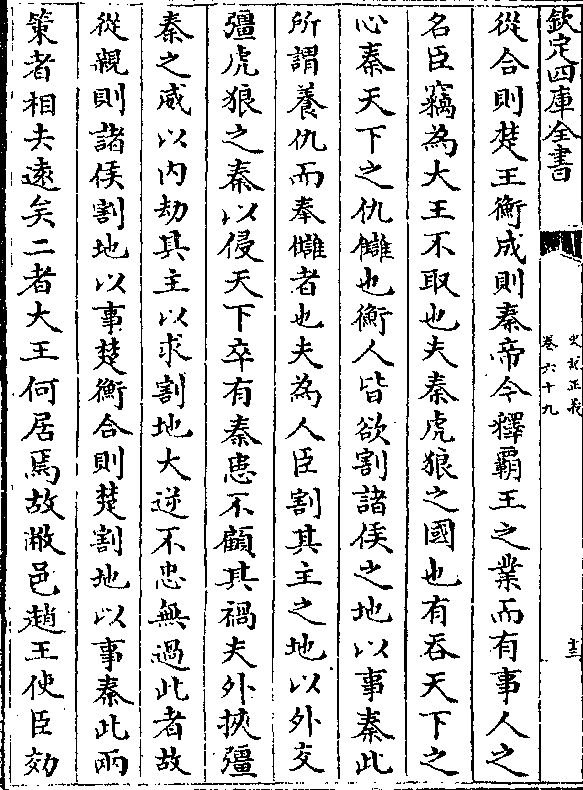 欽定四庫全書
史記正義
卷六十九
十三
從合則楚王衡成則秦帝今釋霸王之業而有事人之
名臣竊為大王不取也夫秦虎狼之國也有吞天下之
心秦天下之仇讎也衡人皆欲割諸侯之地以事秦此
所謂養仇而奉讎者也夫為人臣割其主之地以外交
彊虎狼之秦以侵天下卒有秦患不顧其禍夫外挾彊
秦之威以内劫其主以求割地大逆不忠無過此者故
從親則諸侯割地以事楚衡合則楚割地以事秦此兩
策者相去遠矣二者大王何居焉故敝邑趙王使臣効